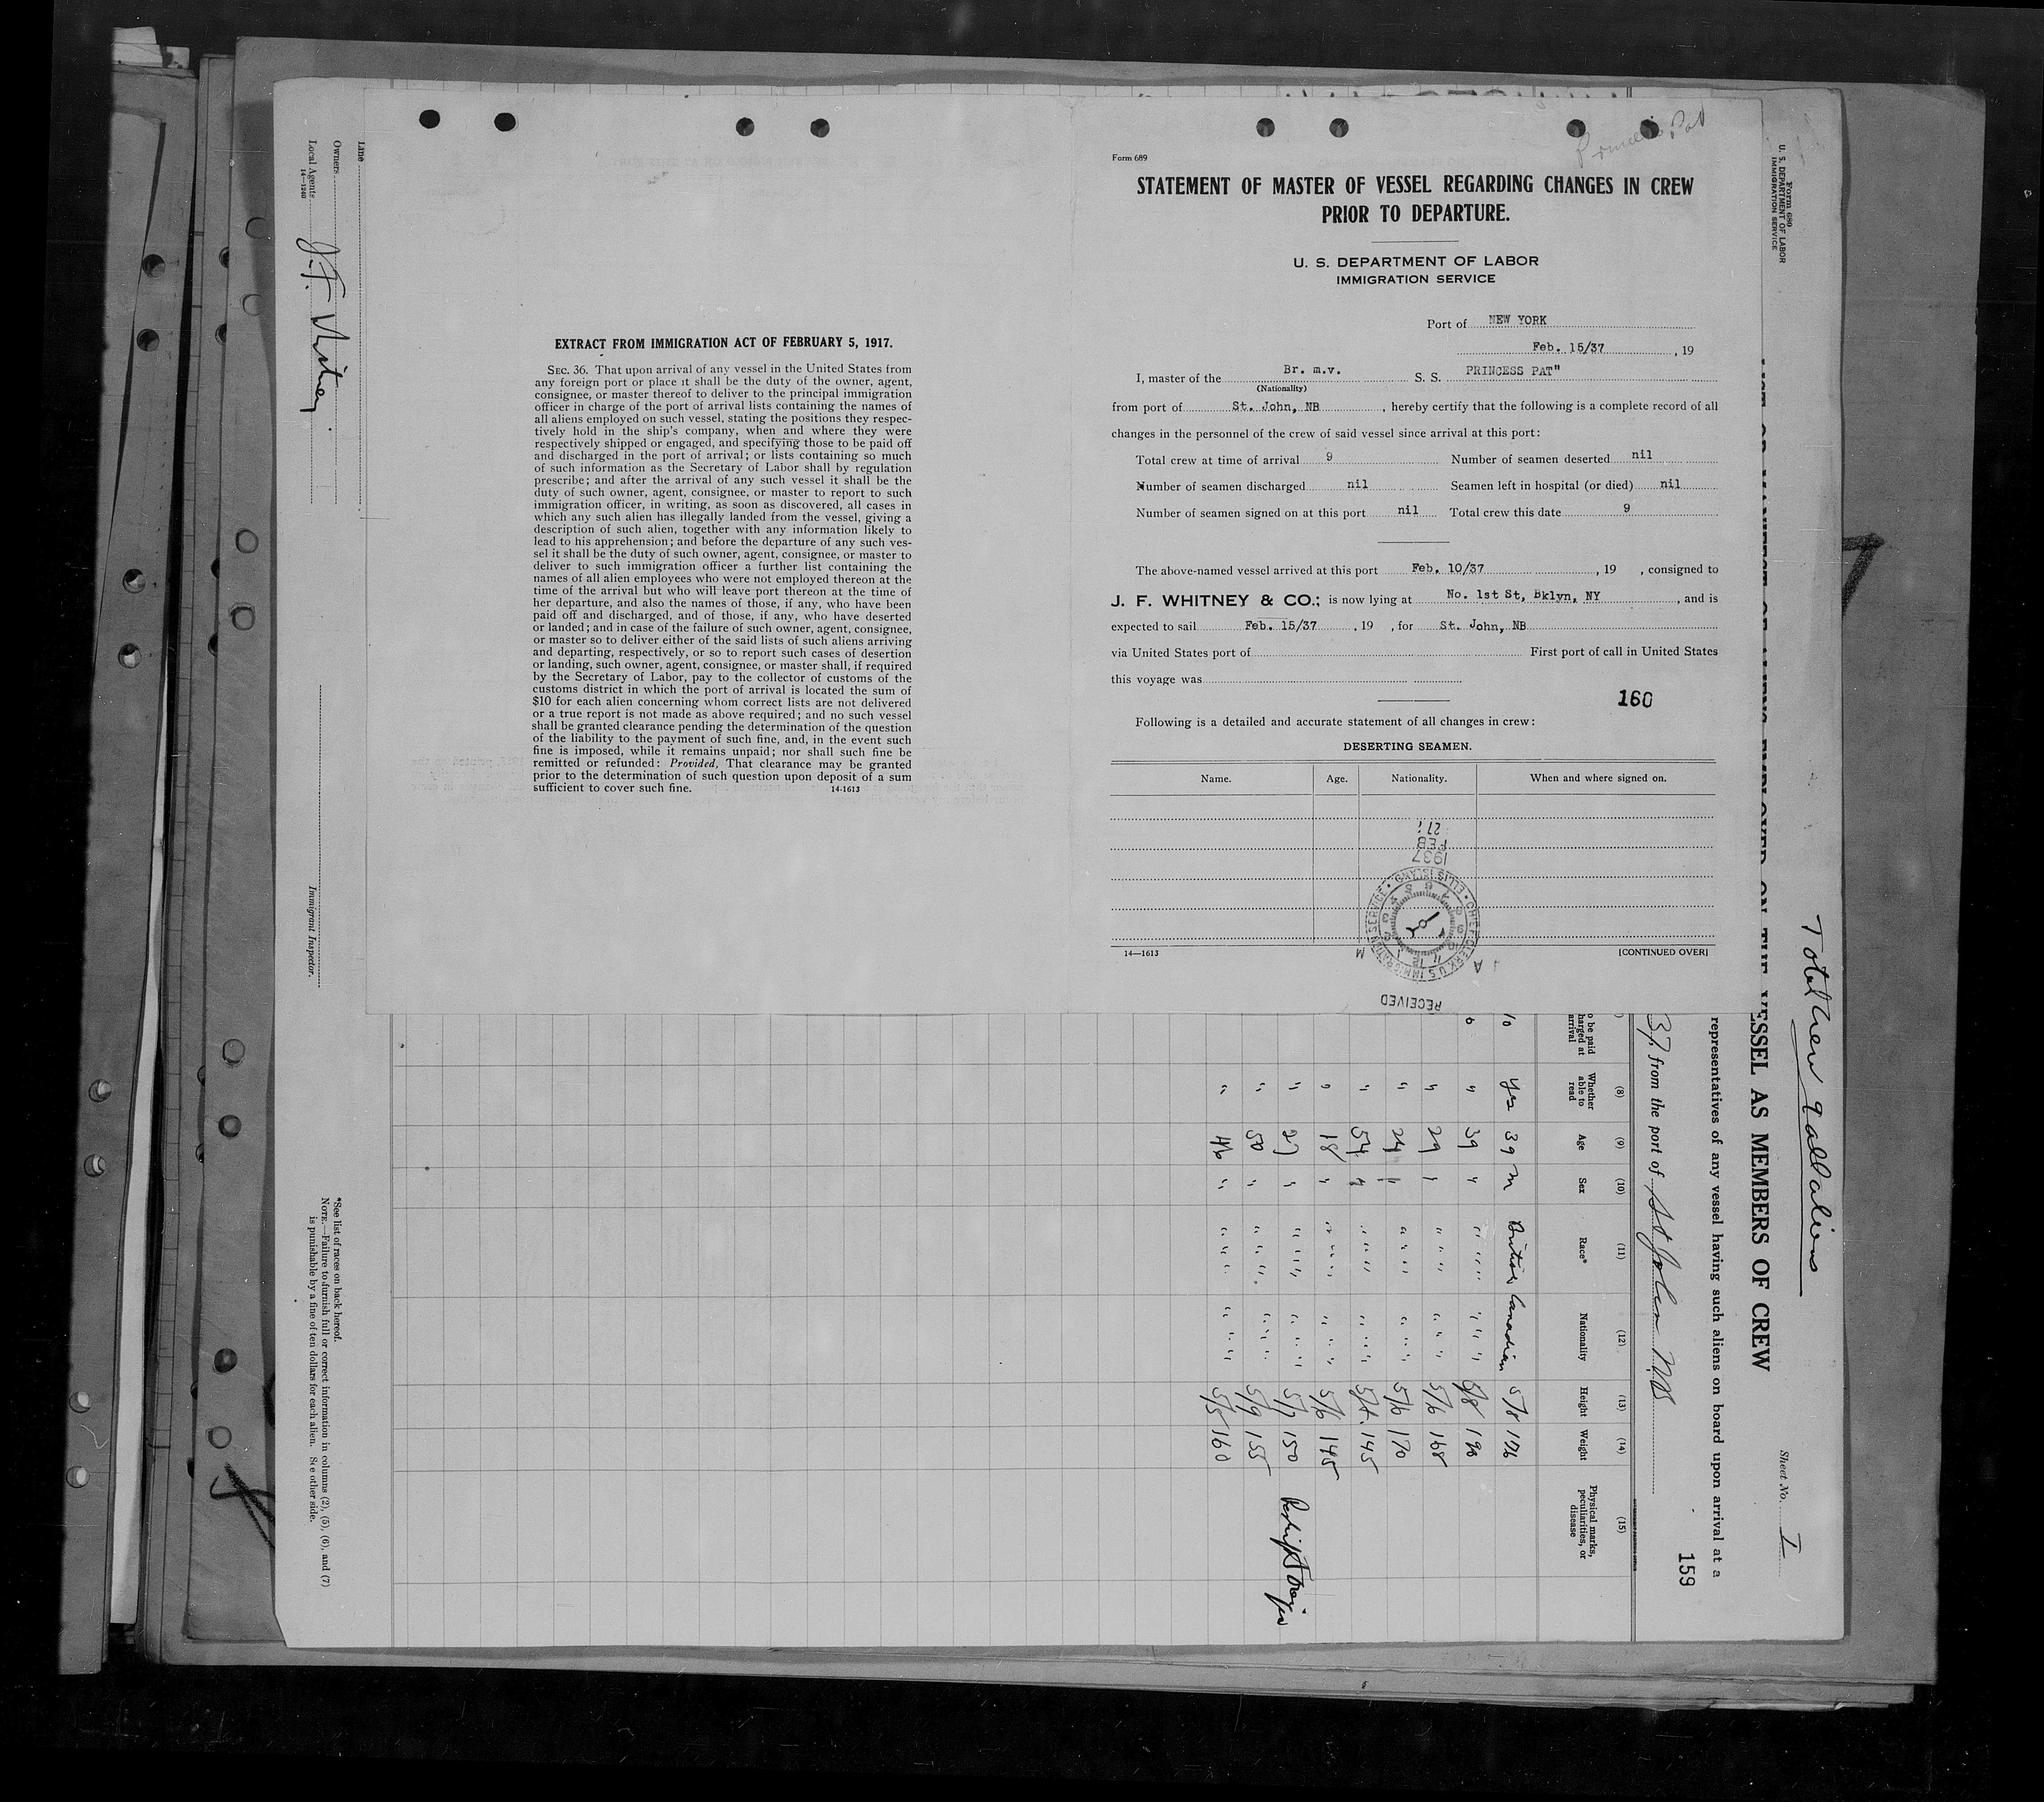 Form 689
STATEMENT OF MASTER OF VESSEL REGARDING CHANGES IN CREW
PRIOR TO DEPARTURE.
U. S. DEPARTMENT OF LABOR
IMMIGRATION SERVICE
Port of NEW YORK
Feb. 15/37, 19
I, master of the Br. m.v. S. S. PRINCESS PAT"
(Nationality)
from port of St. John, NB, hereby certify that the following is a complete record of all
changes in the personnel of the crew of said vessel since arrival at this port:
Total crew at time of arrival 9 Number of seamen deserted nil
Number of seamen discharged nil Seamen left in hospital (or died) nil
Number of seamen signed on at this port nil Total crew this date 9
The above-named vessel arrived at this port Feb. 10/37, 19 , consigned to
J. F. WHITNEY & CO.; is now lying at No. 1st St, Bklyn, NY, and is
expected to sail Feb. 15/37, 19 , for St. John, NB
via United States port of First port of call in United States
this voyage was
160
Following is a detailed and accurate statement of all changes in crew:
DESERTING SEAMEN.
Name. Age. Nationality. When and where signed on.
27
FEB
1937
CHIEF CLERK U.S. IMMIGRATION SERVICE • ELLIS ISLAND •
A M
RECEIVED
14—1613 [CONTINUED OVER]
EXTRACT FROM IMMIGRATION ACT OF FEBRUARY 5, 1917.
SEC. 36. That upon arrival of any vessel in the United States from
any foreign port or place it shall be the duty of the owner, agent,
consignee, or master thereof to deliver to the principal immigration
officer in charge of the port of arrival lists containing the names of
all aliens employed on such vessel, stating the positions they respec-
tively hold in the ship's company, when and where they were
respectively shipped or engaged, and specifying those to be paid off
and discharged in the port of arrival; or lists containing so much
of such information as the Secretary of Labor shall by regulation
prescribe; and after the arrival of any such vessel it shall be the
duty of such owner, agent, consignee, or master to report to such
immigration officer, in writing, as soon as discovered, all cases in
which any such alien has illegally landed from the vessel, giving a
description of such alien, together with any information likely to
lead to his apprehension; and before the departure of any such ves-
sel it shall be the duty of such owner, agent, consignee, or master to
deliver to such immigration officer a further list containing the
names of all alien employees who were not employed thereon at the
time of the arrival but who will leave port thereon at the time of
her departure, and also the names of those, if any, who have been
paid off and discharged, and of those, if any, who have deserted
or landed; and in case of the failure of such owner, agent, consignee,
or master so to deliver either of the said lists of such aliens arriving
and departing, respectively, or so to report such cases of desertion
or landing, such owner, agent, consignee, or master shall, if required
by the Secretary of Labor, pay to the collector of customs of the
customs district in which the port of arrival is located the sum of
$10 for each alien concerning whom correct lists are not delivered
or a true report is not made as above required; and no such vessel
shall be granted clearance pending the determination of the question
of the liability to the payment of such fine, and, in the event such
fine is imposed, while it remains unpaid; nor shall such fine be
remitted or refunded: Provided, That clearance may be granted
prior to the determination of such question upon deposit of a sum
sufficient to cover such fine. 14-1613
Form 680
U. S. DEPARTMENT OF LABOR
IMMIGRATION SERVICE
Total crew 9 all aliens
Sheet No. I
VESSEL AS MEMBERS OF CREW
representatives of any vessel having such aliens on board upon arrival at a
159
37, from the port of St John NB
(8) (9) (10) (11) (12) (13) (14) (15)
o be paid harged at arrival Whether able to read Age Sex Race* Nationality Height Weight Physical marks, peculiarities, or disease
yes 39 m British Canadian 5/8 176
" 39 " " " " " " " 5/8 190
" 29 " " " " " " " 5/6 168
" 24 " " " " " " " 5/6 170
" 54 " " " " " " " 5/4 145
" 18 " " " " " " " 5/6 145
" 27 " " " " " " " 5/7 150
" 50 " " " " " " " 5/9 155
" 46 " " " " " " " 5/5 160
Line
Owners
Local Agents J. F. Whitney
14—1240
Immigrant Inspector.
*See list of races on back hereof.
NOTE.—Failure to furnish full or correct information in columns (2), (5), (6), and (7)
is punishable by a fine of ten dollars for each alien. See other side.